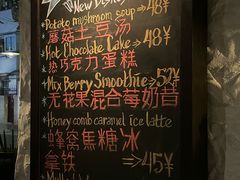 New Dishes
Potato mushroom soup⇒48¥
蘑菇土豆汤
Hot Chocolate Cake⇒48¥
热巧克力蛋糕
Mix Berry Smoothie⇒52¥
无花果混合莓奶昔
Honey comb caramel ice latte
蜂窝焦糖冰
拿铁 ⇒45¥